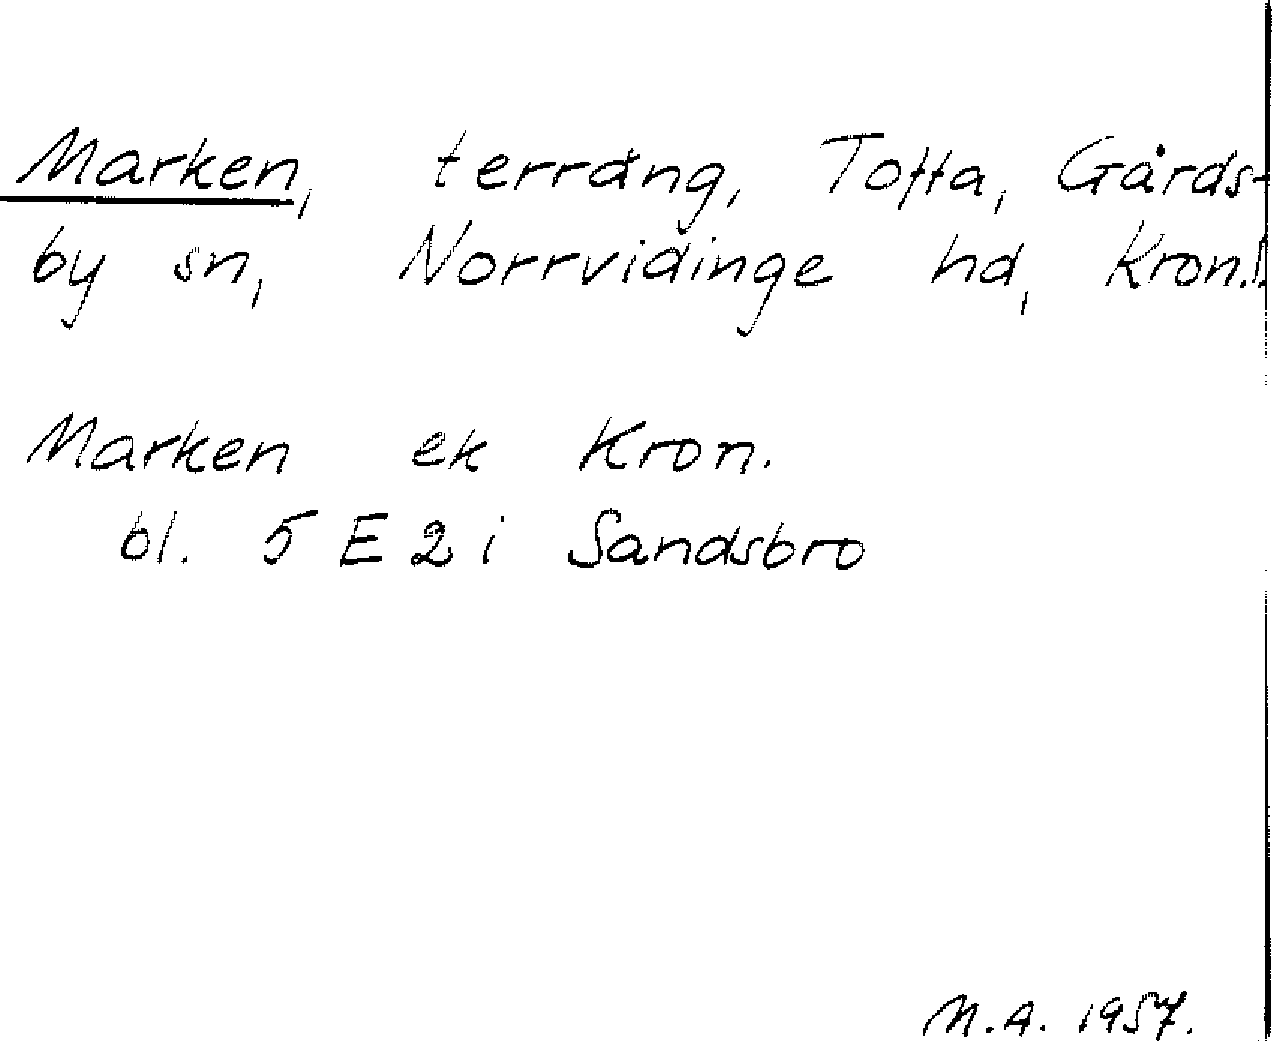 Marken, terräng, Tofta, Gårds-
by sn, Norrvidinge hd, Kron.l.
Marken ek Kron.
bl. 5 E 2 i Sandsbro
M.A. 1957.